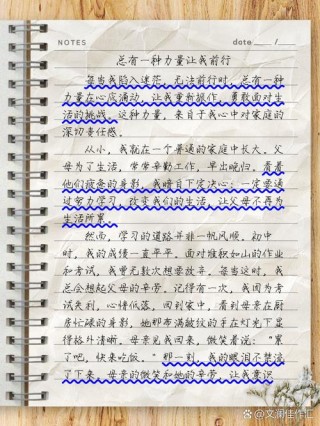 NOTES
date ___/___
总有一种力量让我前行
每当我陷入迷茫，无法前行时，总有一种
力量在心底涌动，让我重新振作，勇敢面对生
活的挑战。这种力量，来自于我心中对家庭的
深切责任感。
从小，我就在一个普通的家庭中长大。父
母为了生活，常常辛勤工作，早出晚归。看着
他们疲惫的身影，我暗自下定决心：一定要通
过努力学习，改变我们的生活，让父母不再为
生活所累。
然而，学习的道路并非一帆风顺。初中
时，我的成绩一直平平。面对堆积如山的作业
和考试，我曾无数次想要放弃。每当这时，我
总会想起父母的辛劳。记得有一次，我因为考
试失利，心情低落，回到家中，看到母亲在厨
房忙碌的身影，她那布满皱纹的手在灯光下显
得格外清晰。母亲见我回来，微笑着说：“累
了吧，快来吃饭。”那一刻，我的眼泪不禁流
了下来。母亲的微笑和她的辛劳，让我意识
@文澜佳作汇